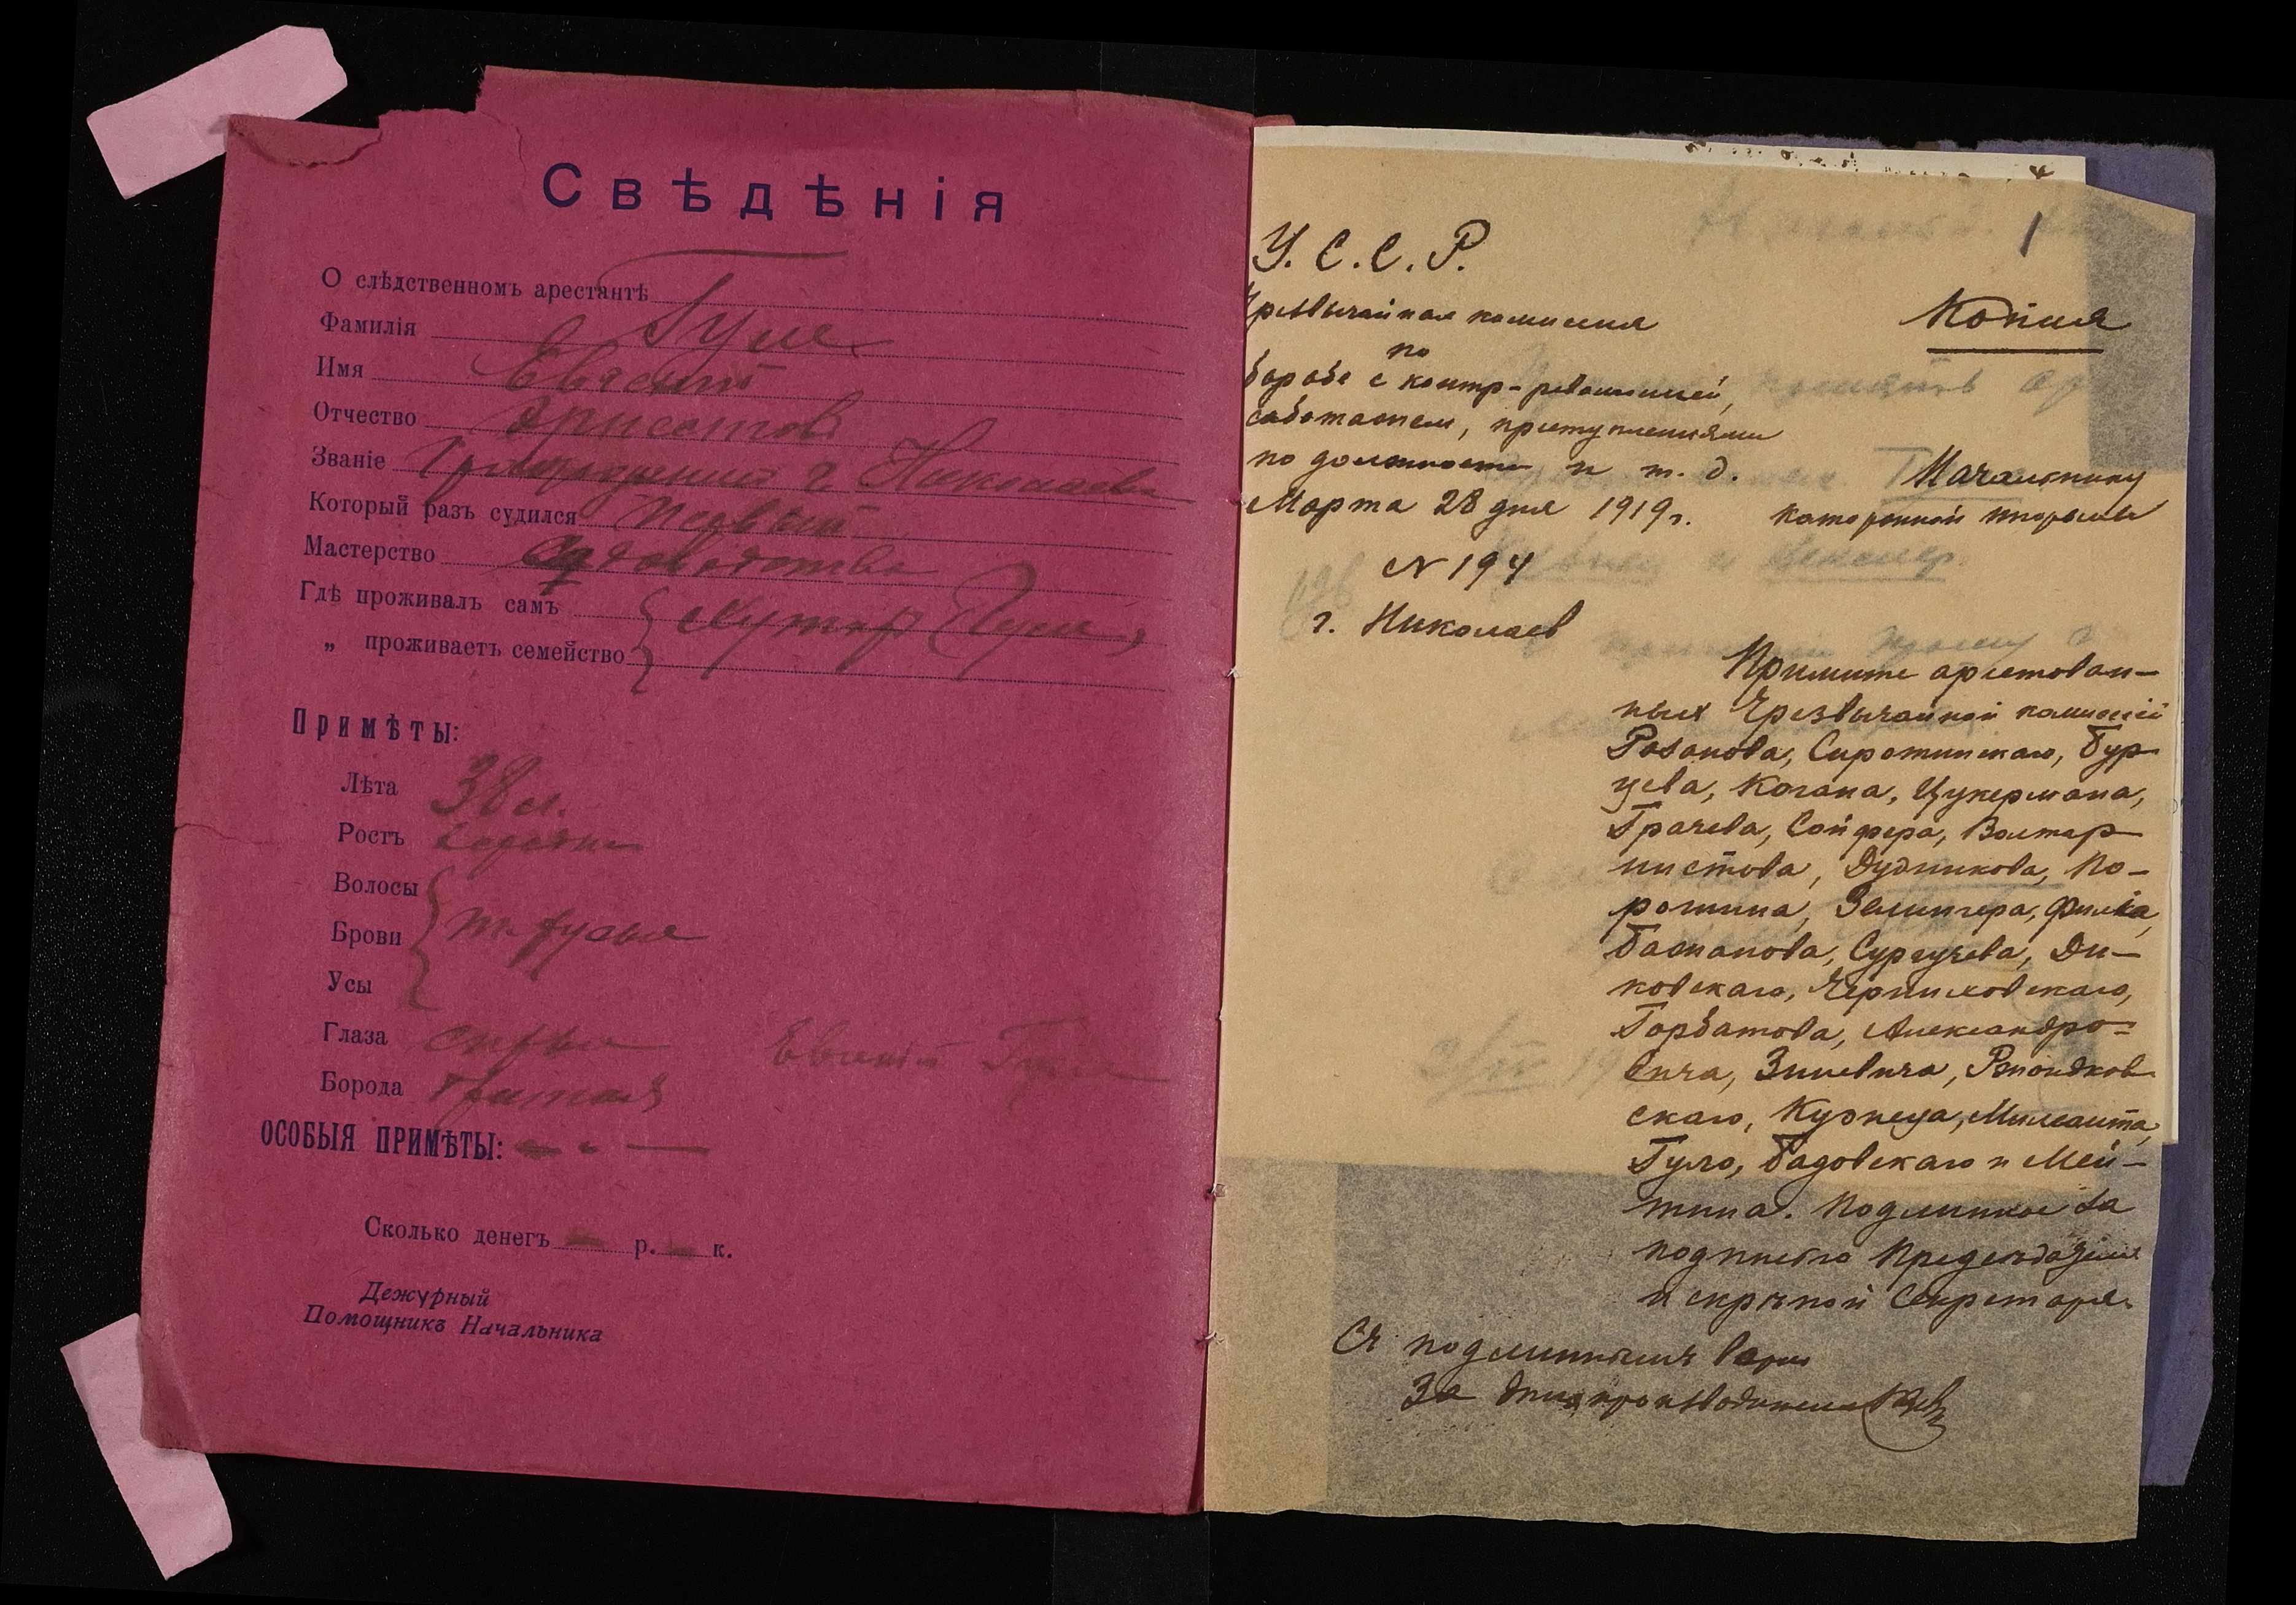 Свѣдѣнія
О слѣдственномъ арестантѣ
Фамилія Гуле
Имя Евгеній
Отчество Эрнестовъ
Званіе г. Николаева
Который разъ судился первый
Мастерство садоводство
Гдѣ проживалъ самъ Хуторъ Гуле
„ проживаетъ семейство
Примѣты:
Лѣта 38 л.
Ростъ
Волосы
Брови т. русые
Усы
Глаза сѣрые
Евгеній Гуле
Борода бритая
ОСОБЫЯ ПРИМѢТЫ: — - —
Сколько денегъ — р. — к.
Дежурный
Помощникъ Начальника
1
У. С. С. Р.
Чрезвычайная комиссия
Копия
по
борьбе с контр-революцией,
саботажем, преступлениями
по должности и т. д.
Начальнику
Марта 28 дня 1919 г.
каторжной тюрьмы
N 194
г. Николаев
Примите арестован-
ных Чрезвычайной комиссіей
Розанова, Сиротинскаго, Бур-
цева, Когана, Цукермана,
Грачева, Сойфера, Волтар-
нистова, Дудникова, По-
рошина, Зелингера, Филка,
Бажанова, Сургучева, Ди-
ковскаго, Черниховскаго,
Горбатова, Александро-
вича, Зиневича, Рмондков-
скаго, Кузнеца, Милганта,
Гуле, Бадовскаго и Мей-
тина. Подлинное за
подписью Председателя
и скрѣпой Секретаря.
С подлинным верно
За делопроизводителя